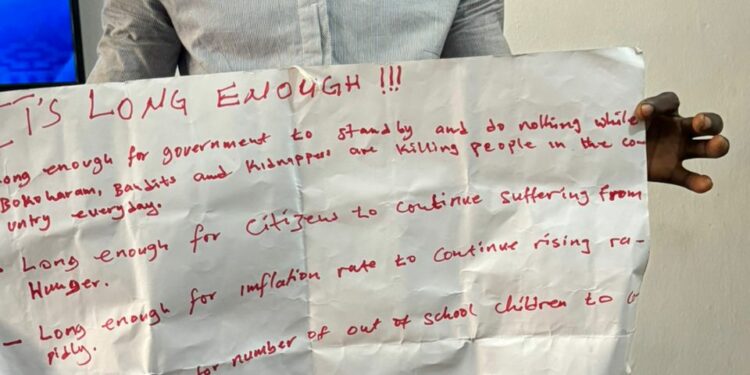 IT'S LONG ENOUGH !!!
Long enough for government to standby and do nothing while
Bokoharam, Bandits and Kidnappers are killing people in the co-
untry everyday.
- Long enough for citizens to continue suffering from
Hunger.
- Long enough for inflation rate to continue rising ra-
pidly.
for number of out of school children to